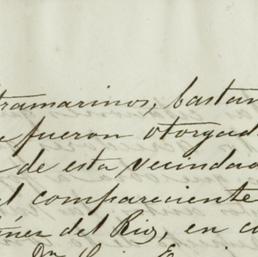 tramarinos, bastan
e fueron otorgad
de esta vecindad
el compareciente
ínez del Rio, en cu